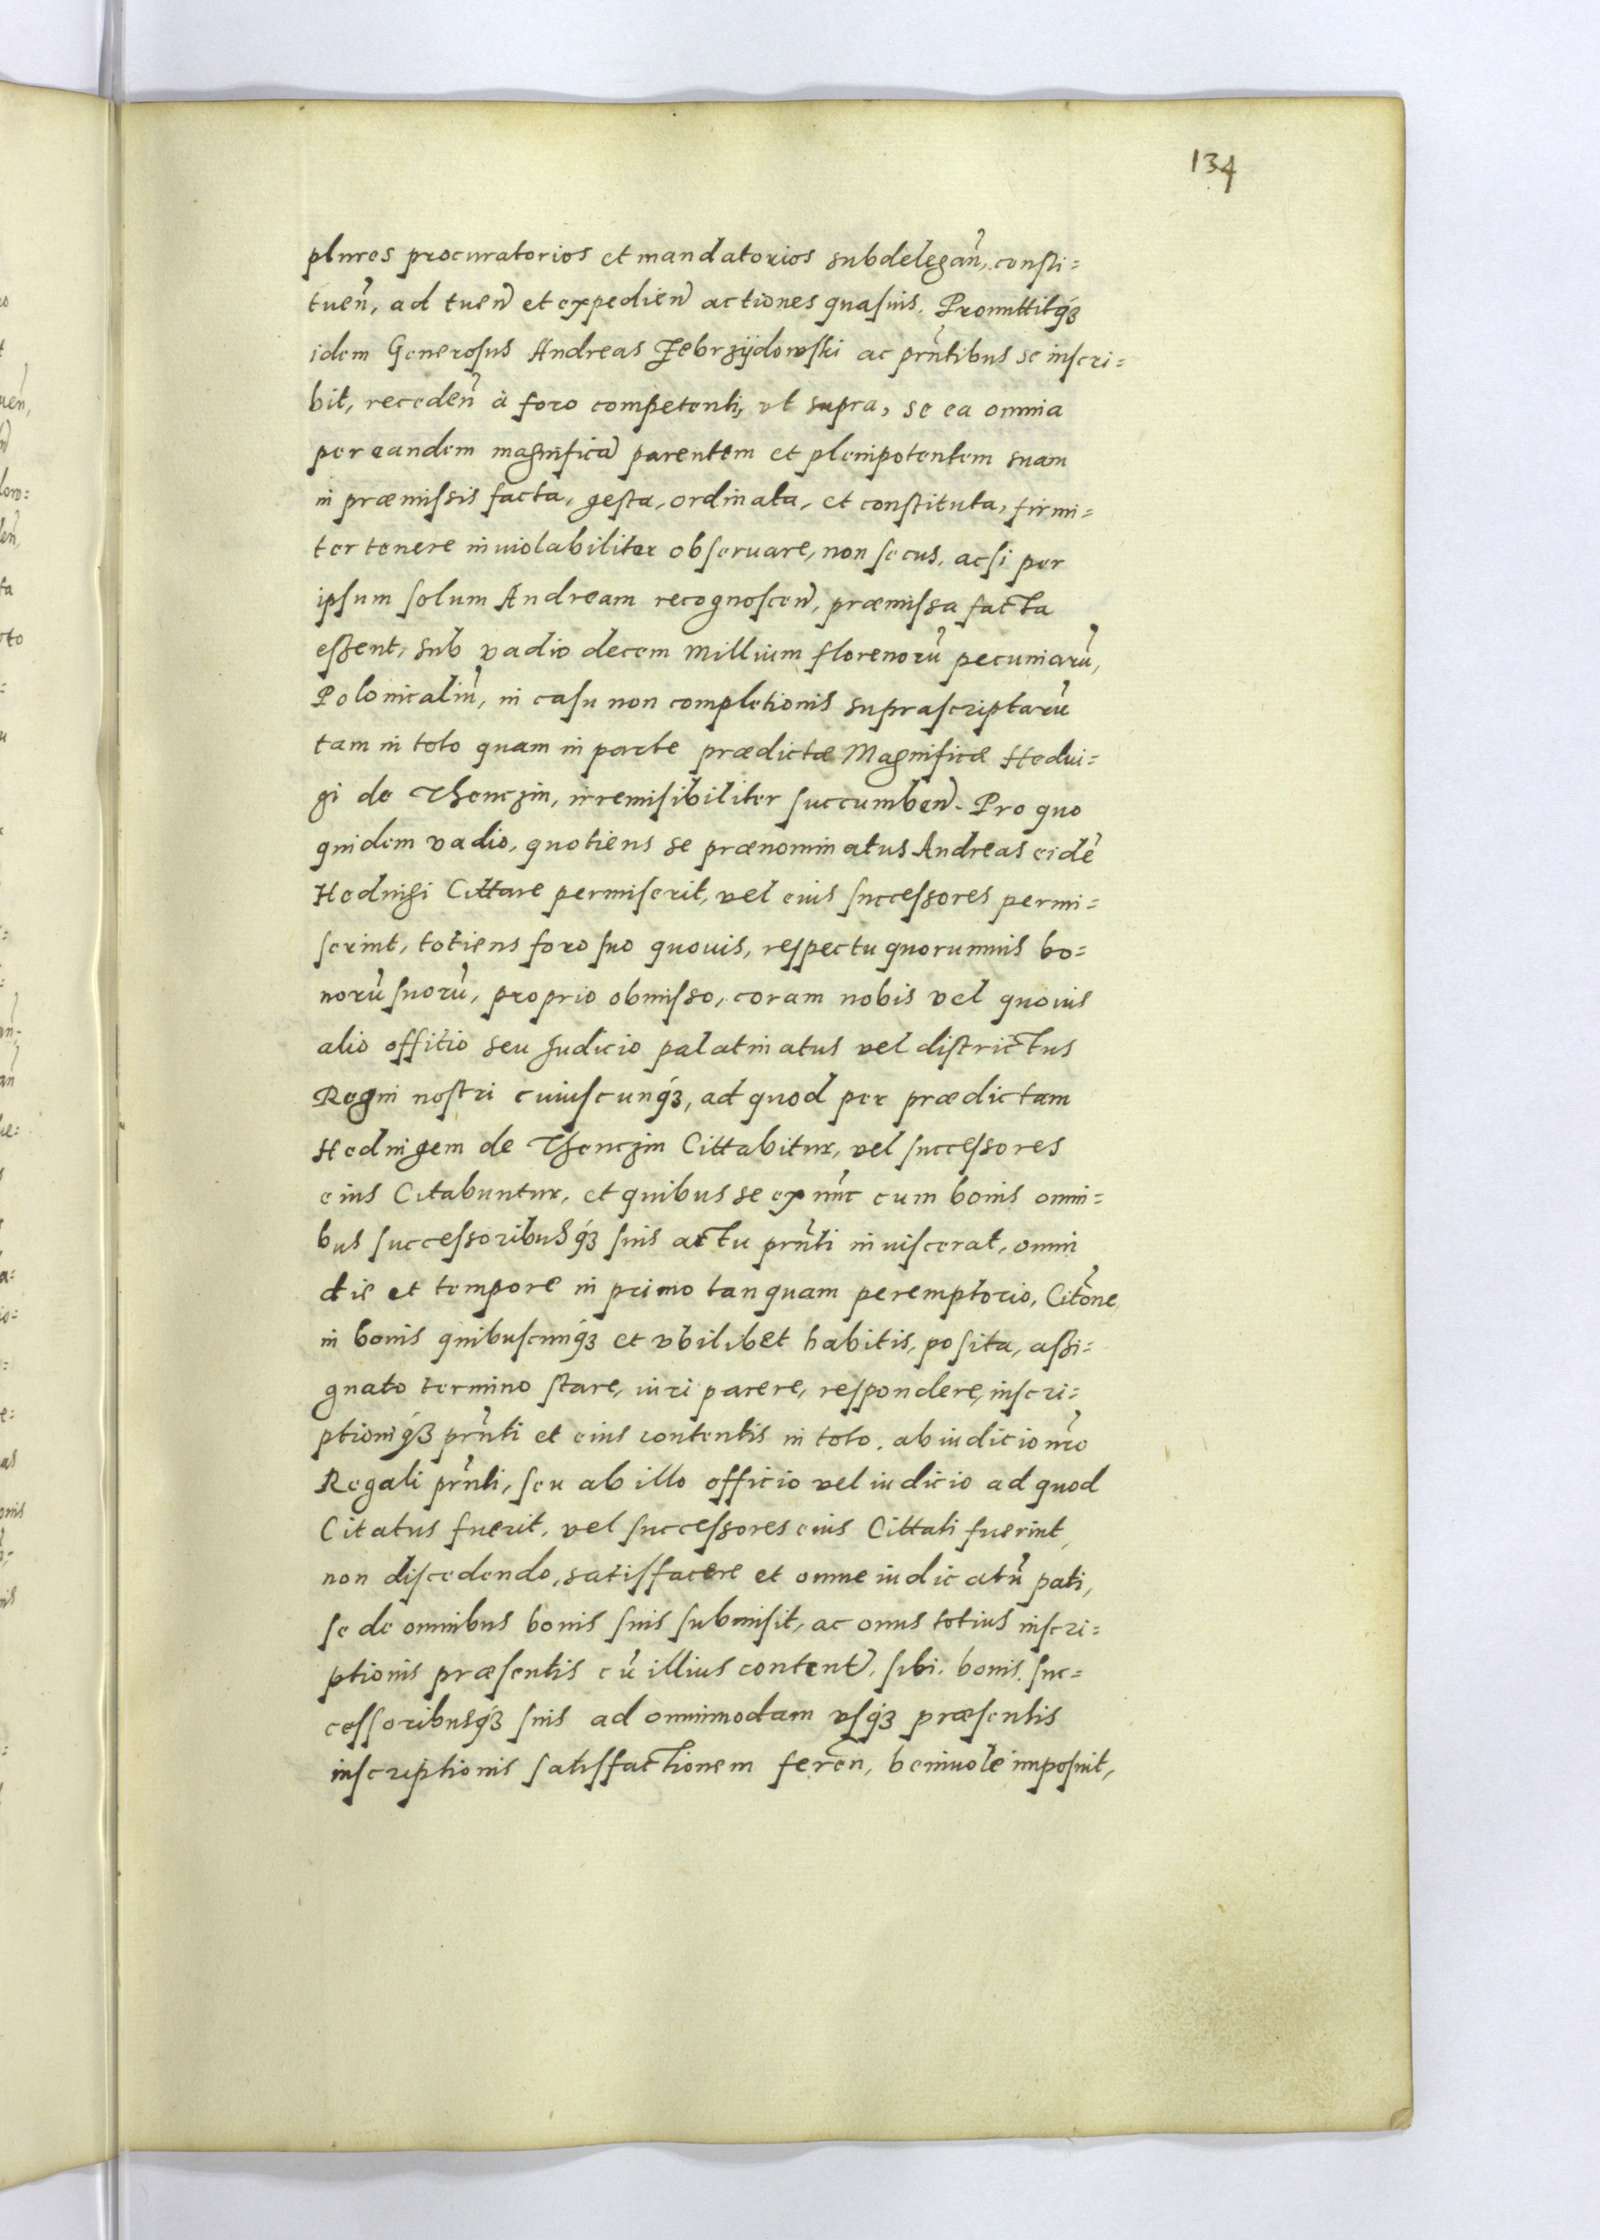 134
plures procuratorios et mandatorios subdelegan̄, consti=
tuen̄, ad tuen̄ et expedien̄ actiones quasuis. Promittitq́ꝫ
idem Generosus Andreas Zebrzÿdowski ac pr̄ntibus se inscri=
bit, receden̄ à foro competenti, vt supra, se ea omnia
per eandem magnificā parentem et plenipotentem suam
in præmissis facta, gesta, ordinata, et constituta, firmi=
ter tenere inuiolabiliter obseruare, non secus, acsi per
ipsum solum Andream recognoscen̄, præmissa facta
essent, sub vadio decem Millium florenorū pecuniarū,
Polonicaliū, in casu non completionis suprascriptarū
tam in toto quam in parte prædictæ Magnificæ Hedui=
gi de Thenczin, irremisibiliter succumben̄. Pro quo
quidem vadio, quotiens se prænominatus Andreas eidē
Heduigi Cittare permiserit, vel eius successores permi=
serint, totiens foro suo quouis, respectu quorumuis bo=
norū suorū, proprio obmisso, coram nobis vel quouis
alio offitio seu Judicio palatinatus vel districtus
Regni nostri cuiuscunq́ꝫ, ad quod per prædictam
Heduigem de Thenczin Cittabitur, vel successores
eius Citabuntur, et quibus se ex nūc cum bonis omni=
bus successoribusq́ꝫ suis actu pr̄nti inuiscerat, omni
die et tempore in primo tanquam peremptorio, Citōne
in bonis quibuscunq́ꝫ et vbilibet habitis, posita, assi=
gnato termino stare, iuri parere, respondere, inscri=
ptioniq́ꝫ pr̄nti et eius contentis in toto, ab iudicio nr̄o
Regali pr̄nti, seu ab illo officio vel iudicio ad quod
Citatus fuerit, vel successores eius Cittati fuerint,
non discedendo, satisfacere et omne iudicatū pati,
se de omnibus bonis suis submisit, ac onus totius inscri=
ptionis præsentis cū illius content̄, sibi, bonis suc=
cessoribusq́ꝫ suis ad omnimodam vsq́ꝫ præsentis
inscriptionis satisfactionem feren̄, beniuole imposuit,